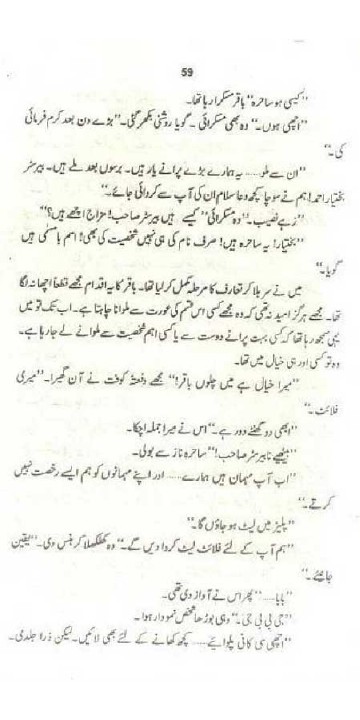 59
"کیسی ہو ساحرہ" باقر مسکرا رہا تھا۔
"اچھی ہوں۔" وہ بھی مسکرائی ۔ گویا روشنی بکھر گئی۔ "بڑے دن بعد کرم فرمائی
کی۔"
"ان سے ملو...... یہ ہمارے بڑے پرانے یار ہیں۔ برسوں بعد ملے ہیں۔ بیرسٹر
بختیار احمد! ہم نے سوچا کچھ دعا سلام ان کی آپ سے کروائی جائے۔"
"زہے نصیب۔" وہ مسکرائی "کیسے ہیں بیرسٹر صاحب! مزاج اچھے ہیں؟"
"بختیار! یہ ساحرہ ہیں! صرف نام کی ہی نہیں شخصیت کی بھی! اسم بامسمی ہیں
گویا۔"
میں نے سر ہلا کر تعارف کا مرحلہ مکمل کر لیا تھا۔ باقر کا یہ اقدام مجھے قطعاً اچھا نہ لگا
تھا۔ مجھے ہرگز امید نہ تھی کہ وہ مجھے کسی اس قسم کی عورت سے ملوانا چاہتا ہے۔ اب تک تو میں
یہی سمجھ رہا تھا کہ کسی بہت پرانے دوست سے یا کسی اہم شخصیت سے ملوانے لے جا رہا ہے۔
وہ تو کسی اور ہی خیال میں تھا۔
"میرا خیال ہے میں چلوں باقر!" مجھے دفعتہً کوفت نے آن گھیرا۔ "میری
فلائٹ۔"
"ابھی دو گھنٹے دور ہے۔" اس نے میرا جملہ اچکا۔
"بیٹھیے نا بیرسٹر صاحب!" ساحرہ ناز سے بولی۔
"اب آپ مہمان ہیں ہمارے...... اور اپنے مہمانوں کو ہم ایسے رخصت نہیں
کرتے۔"
"پلیز میں لیٹ ہو جاؤں گا۔"
"ہم آپ کے لئے فلائٹ لیٹ کروا دیں گے۔" وہ کھلکھلا کر ہنس دی۔ "یقین
جانیے۔"
"بابا......" پھر اس نے آواز دی تھی۔
"جی بی بی جی۔" وہی بوڑھا شخص نمودار ہوا۔
"اچھی سی کافی پلوائیے...... کچھ کھانے کے لئے بھی لائیں۔ لیکن ذرا جلدی۔